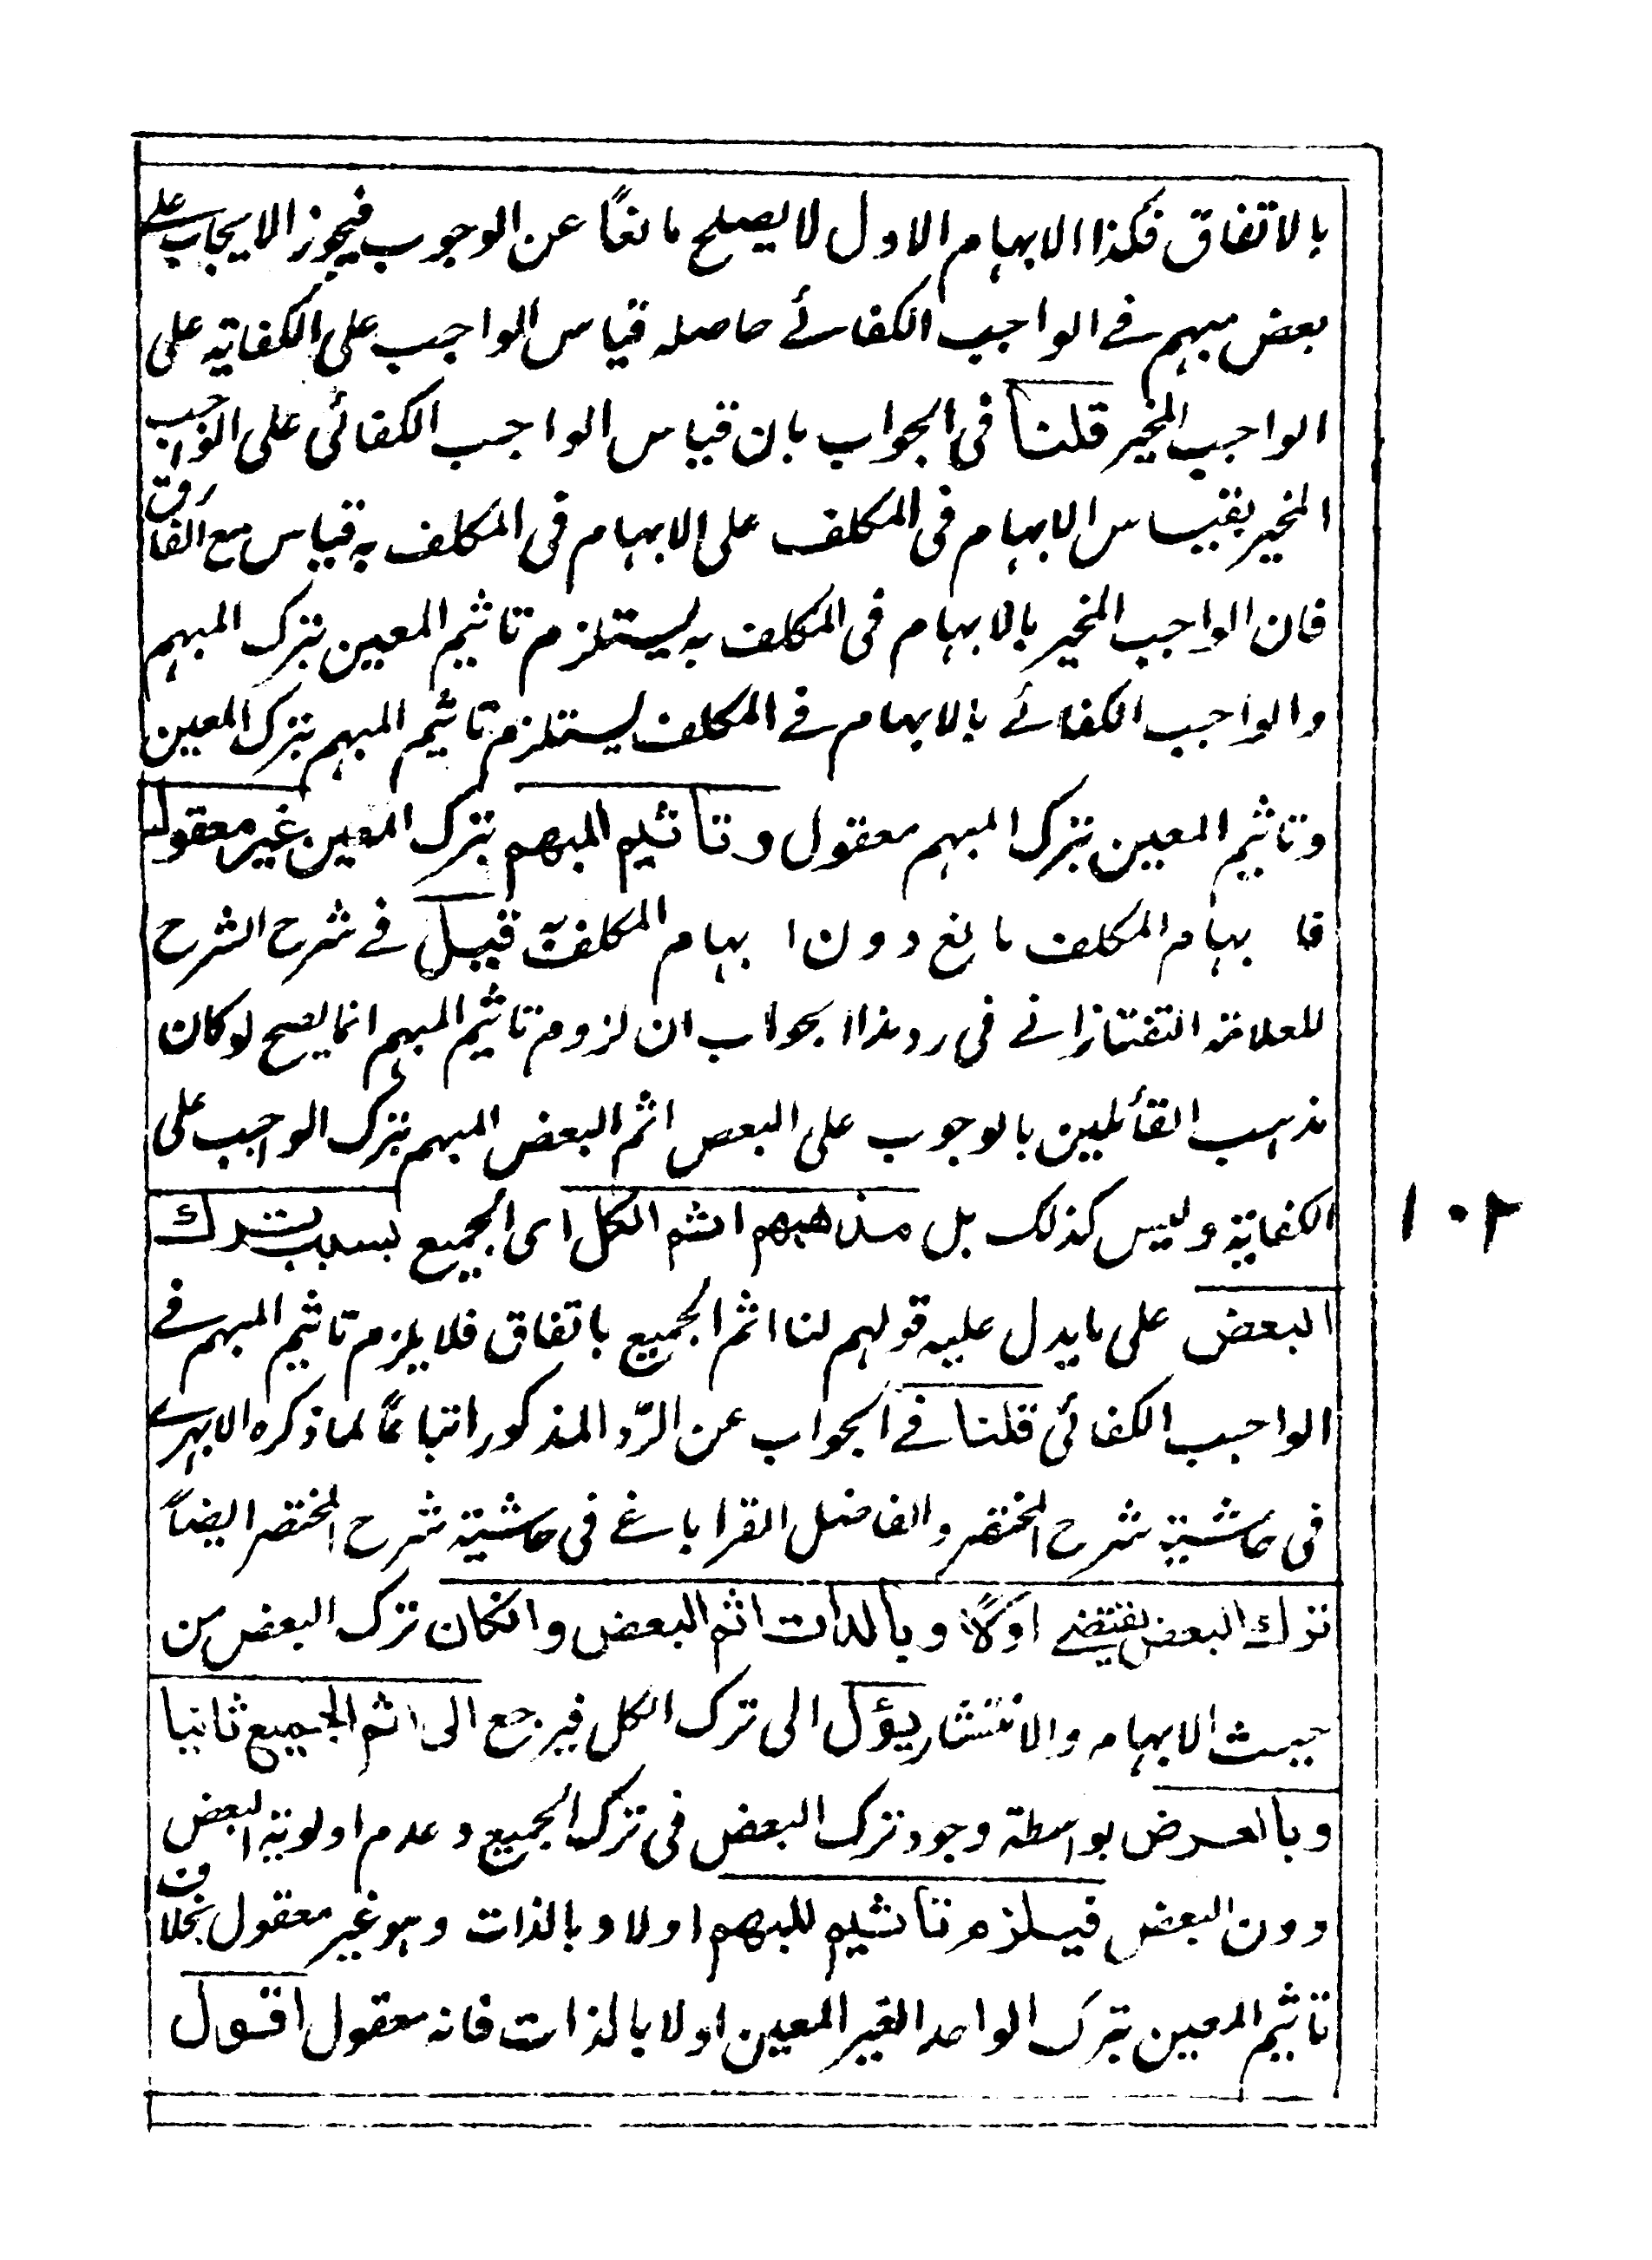 بالاتفاق فكذا الابهام الاول لا يصلح مانعًا عن الوجوب فيجوز الايجاب على
بعض مبهم في الواجب الكفائي حاصله قياس الواجب على الكفاية على
الواجب المخير قلنا في الجواب بان قياس الواجب الكفائي على الواجب
المخير بقياس الابهام في المكلف على الابهام في المكلف به قياس مع الفارق
فان الواجب المخير بالابهام في المكلف به يستلزم تاثيم المعين بترك المبهم
والواجب الكفائي بالابهام في المكلف يستلزم تاثيم المبهم بترك المعين
وتاثيم المعين بترك المبهم معقول وتاثيم المبهم بترك المعين غير معقول
فابهام المكلف مانع دون ابهام المكلف به قيل في شرح الشرح
للعلامة التفتازاني في رد هذا الجواب ان لزوم تاثيم المبهم انما يصح لو كان
مذهب القائلين بالوجوب على البعض اثم البعض المبهم بترك الواجب على
الكفاية وليس كذلك بل مذهبهم اثم الكل اى الجميع بسبب ترك
البعض على ما يدل عليه قولهم لنا اثم الجميع باتفاق فلا يلزم تاثيم المبهم في
الواجب الكفائي قلنا في الجواب عن الرّد المذكور اتباعًا لما ذكره الابهري
في حاشية شرح المختصر والفاضل القراباغي في حاشية شرح المختصر ايضاً
ترك البعض يقتضي اوّلًا وبالذات اثم البعض وانكان ترك البعض من
حيث الابهام والانتشار يؤل الى ترك الكل فيرجع الى اثم الجميع ثانيا
وبالعرض بواسطة وجود ترك البعض في ترك الجميع وعدم اولوية البعض
دون البعض فيلزم تاثيم المبهم اولا وبالذات وهو غير معقول بخلاف
تاثيم المعين بترك الواحد الغير المعين اولا بالذات فانه معقول اقول
١٠٢